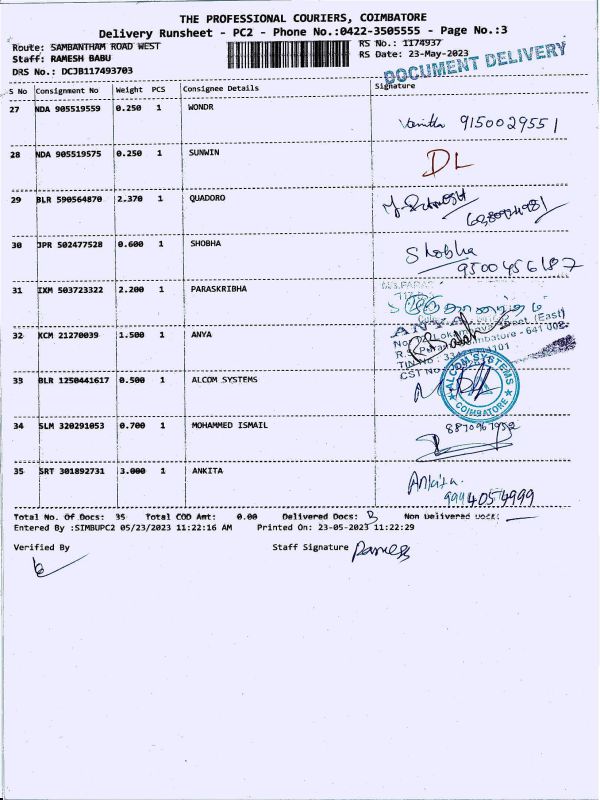 THE PROFESSIONAL COURIERS, COIMBATORE
Delivery Runsheet - PC2 - Phone No.:0422-3505555 - Page No.:3
Route: SAMBANTHAM ROAD WEST
RS No.: 1174937
Staff: RAMESH BABU
RS Date: 23-May-2023
DRS No.: DCJB117493703
DOCUMENT DELIVERY
S No Consignment No Weight PCS Consignee Details Signature
27 NDA 905519559 0.250 1 WONDR
Vanitha 9150029551
28 NDA 905519575 0.250 1 SUNWIN
DL
29 BLR 590564870 2.370 1 QUADORO
30 JPR 502477528 0.600 1 SHOBHA
Shobha
9500456187
31 IXM 503723322 2.200 1 PARASKRIBHA
32 KCM 21270039 1.500 1 ANYA
33 BLR 1250441617 0.500 1 ALCOM SYSTEMS
ALCOM SYSTEMS
COIMBATORE
34 SLM 320291053 0.700 1 MOHAMMED ISMAIL
8870967952
35 SRT 301892731 3.000 1 ANKITA
Ankita.
9994054999
Total No. Of Docs: 35 Total COD Amt: 0.00 Delivered Docs: Non Delivered Docs:
Entered By :SIMBUPC2 05/23/2023 11:22:16 AM Printed On: 23-05-2023 11:22:29
Verified By Staff Signature Ramesh